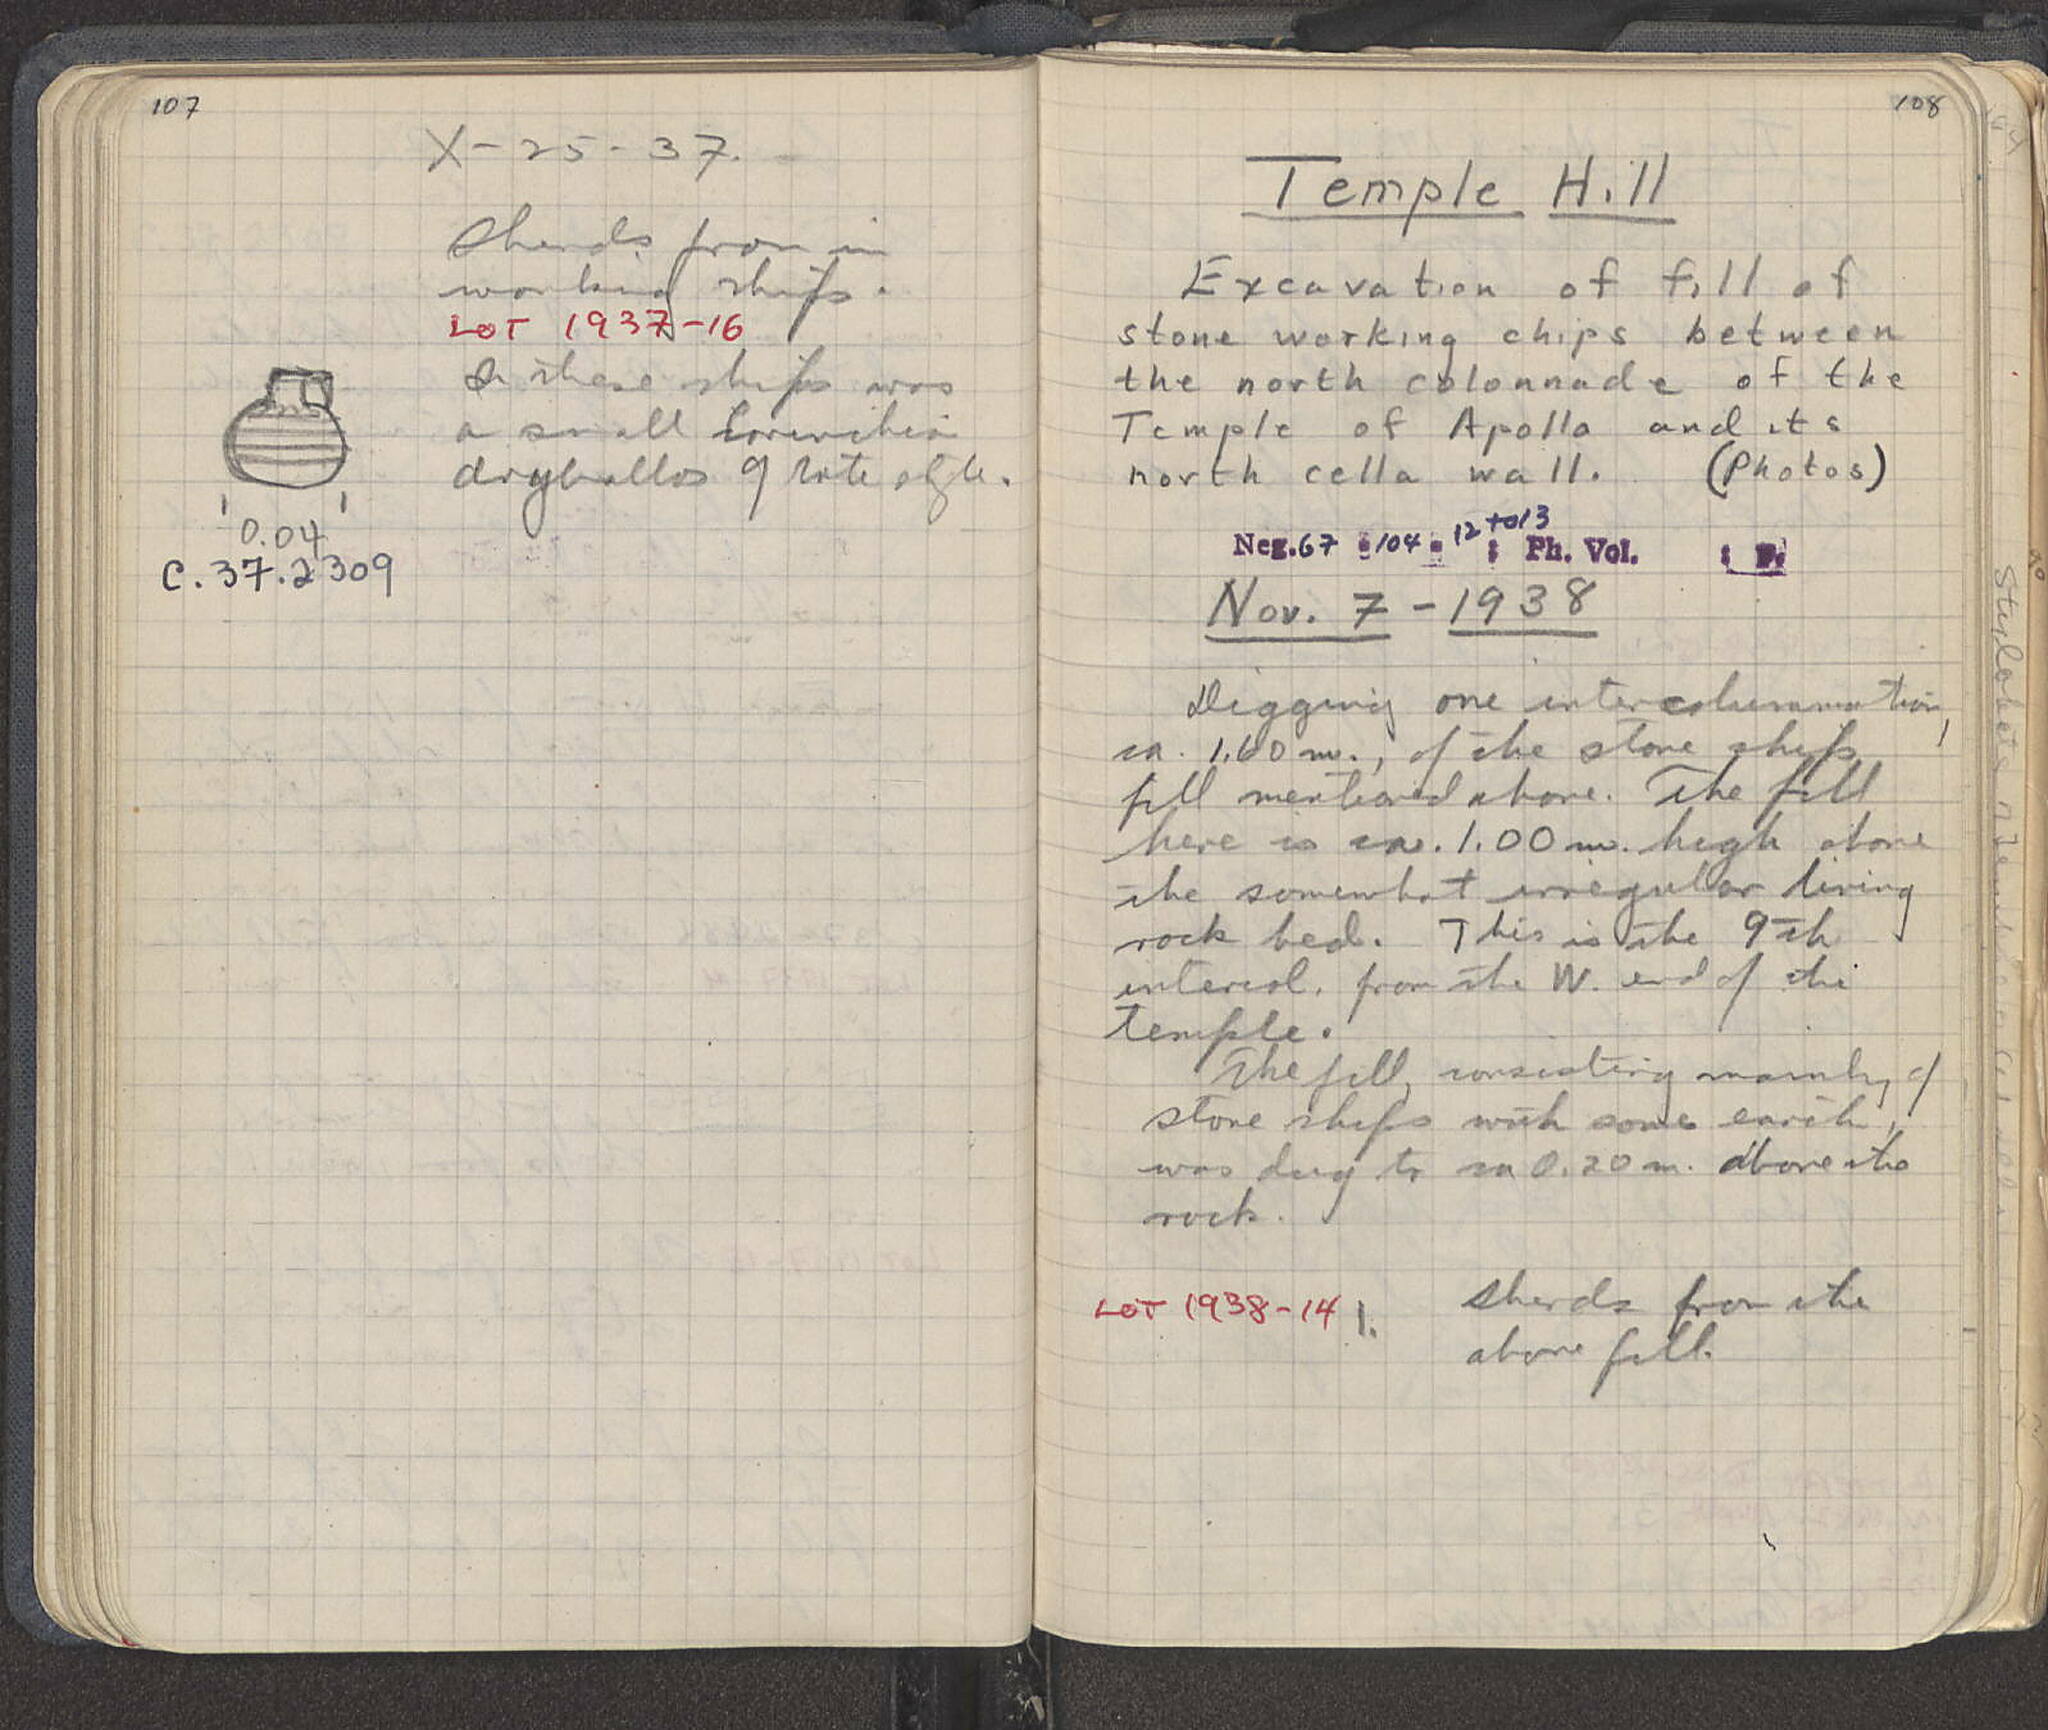 107
X-25-37.
Sherds from in
working chips.
LOT 1937-16
In these chips was
a small Corinthian
aryballos of late style.
0.04
C.37.2309
108
Temple Hill
Excavation of fill of
stone working chips between
the north colonnade of the
Temple of Apollo and its
north cella wall. (Photos)
Neg. 67 : 104 : 12 to 13 : Ph. Vol. : P.
Nov. 7 - 1938
Digging one intercolumnnation,
ca. 1.60 m., of the stone chips
fill mentioned above. The fill
here is ca. 1.00 m. high above
the somewhat irregular living
rock bed. This is the 9th
intercol. from the W. end of the
temple.
The fill, consisting mainly of
stone chips with some earth,
was dug to ca 0.20 m. above the
rock.
LOT 1938-14 1. Sherds from the
above fill.